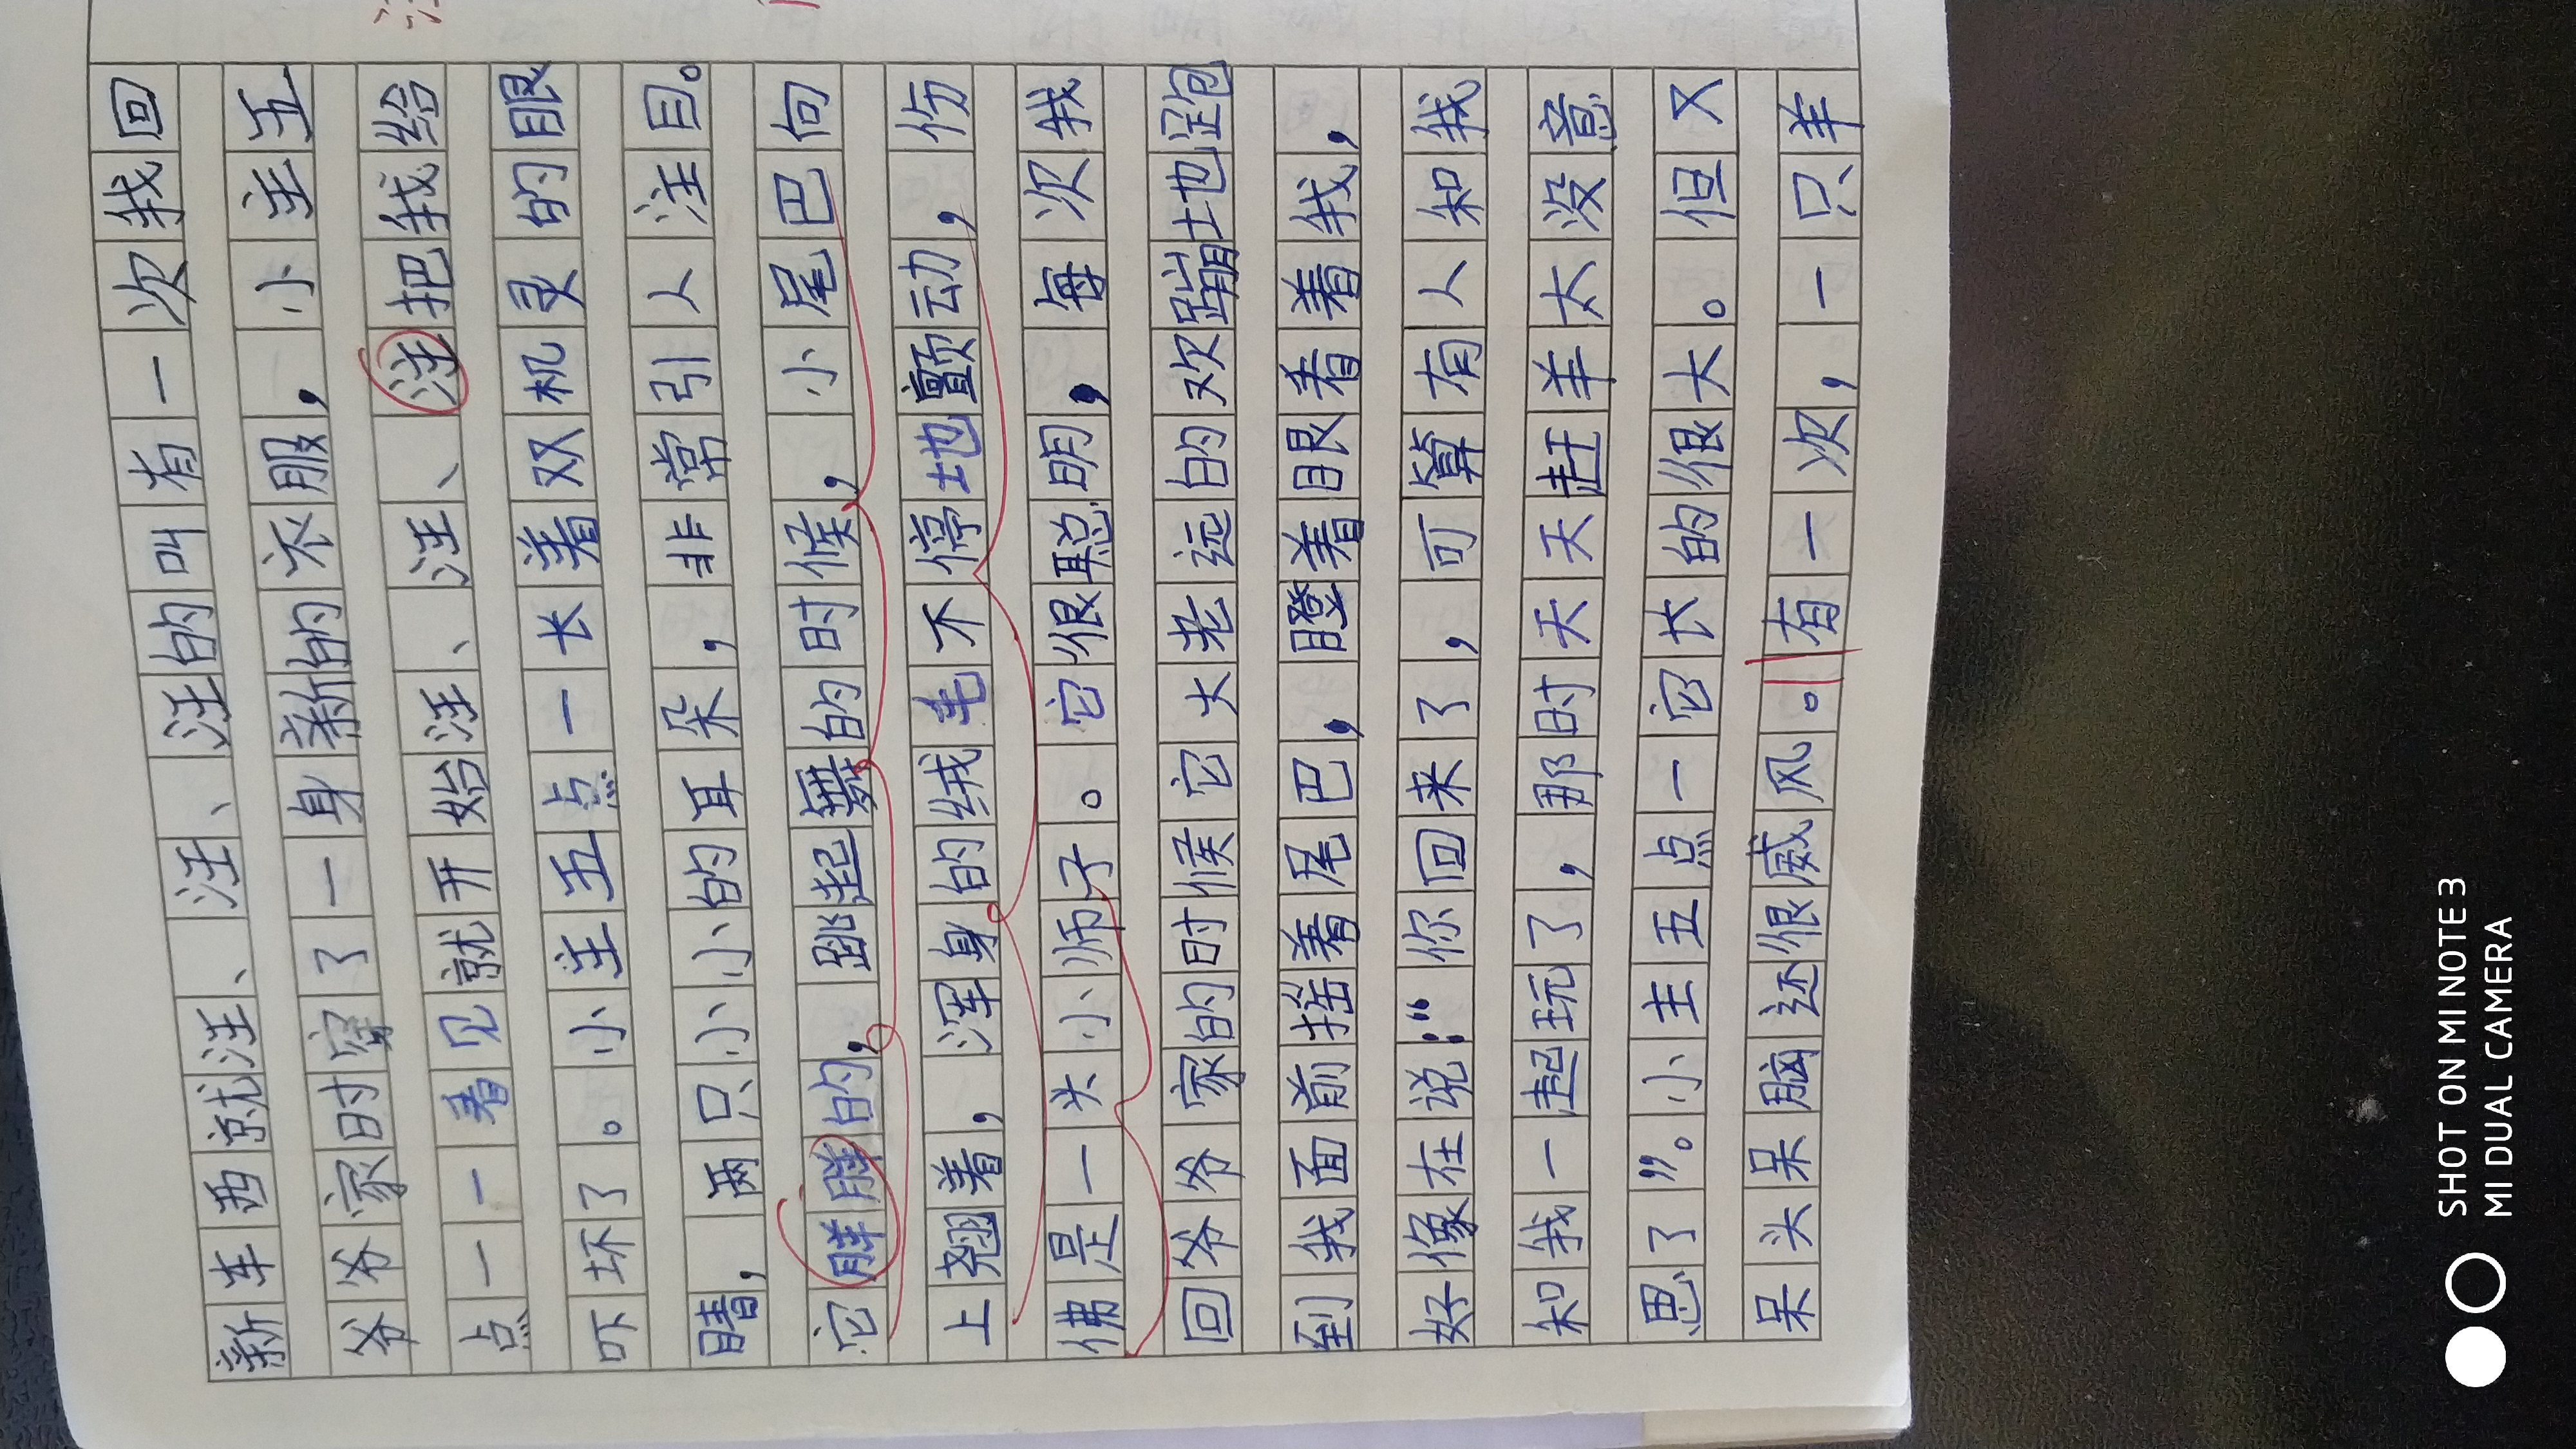 新车西就汪、汪、汪的叫有一次我回
爷爷家时穿了一身新的衣服，小主五
点一一看见就开始汪、汪、注把我给
吓坏了。小主五点一长着双机灵的眼
睛，两只小小的耳朵，非常引人注目。
它胖胖的，跳起舞的时候，小尾巴向
上翘着，浑身的绒毛不停地颤动，仿
佛是一头小师子。它很聪明，每次我
回爷爷家的时候它大老远的欢蹦地跑
到我面前摇着尾巴，瞪着眼看着我，
好像在说：“你回来了，可算有人和我
和我一起玩了，那时天天赶羊太没意
思了”。小主五点一它长的很大。但又
呆头呆脑还很威风。有一次，一只羊
SHOT ON MI NOTE 3
MI DUAL CAMERA